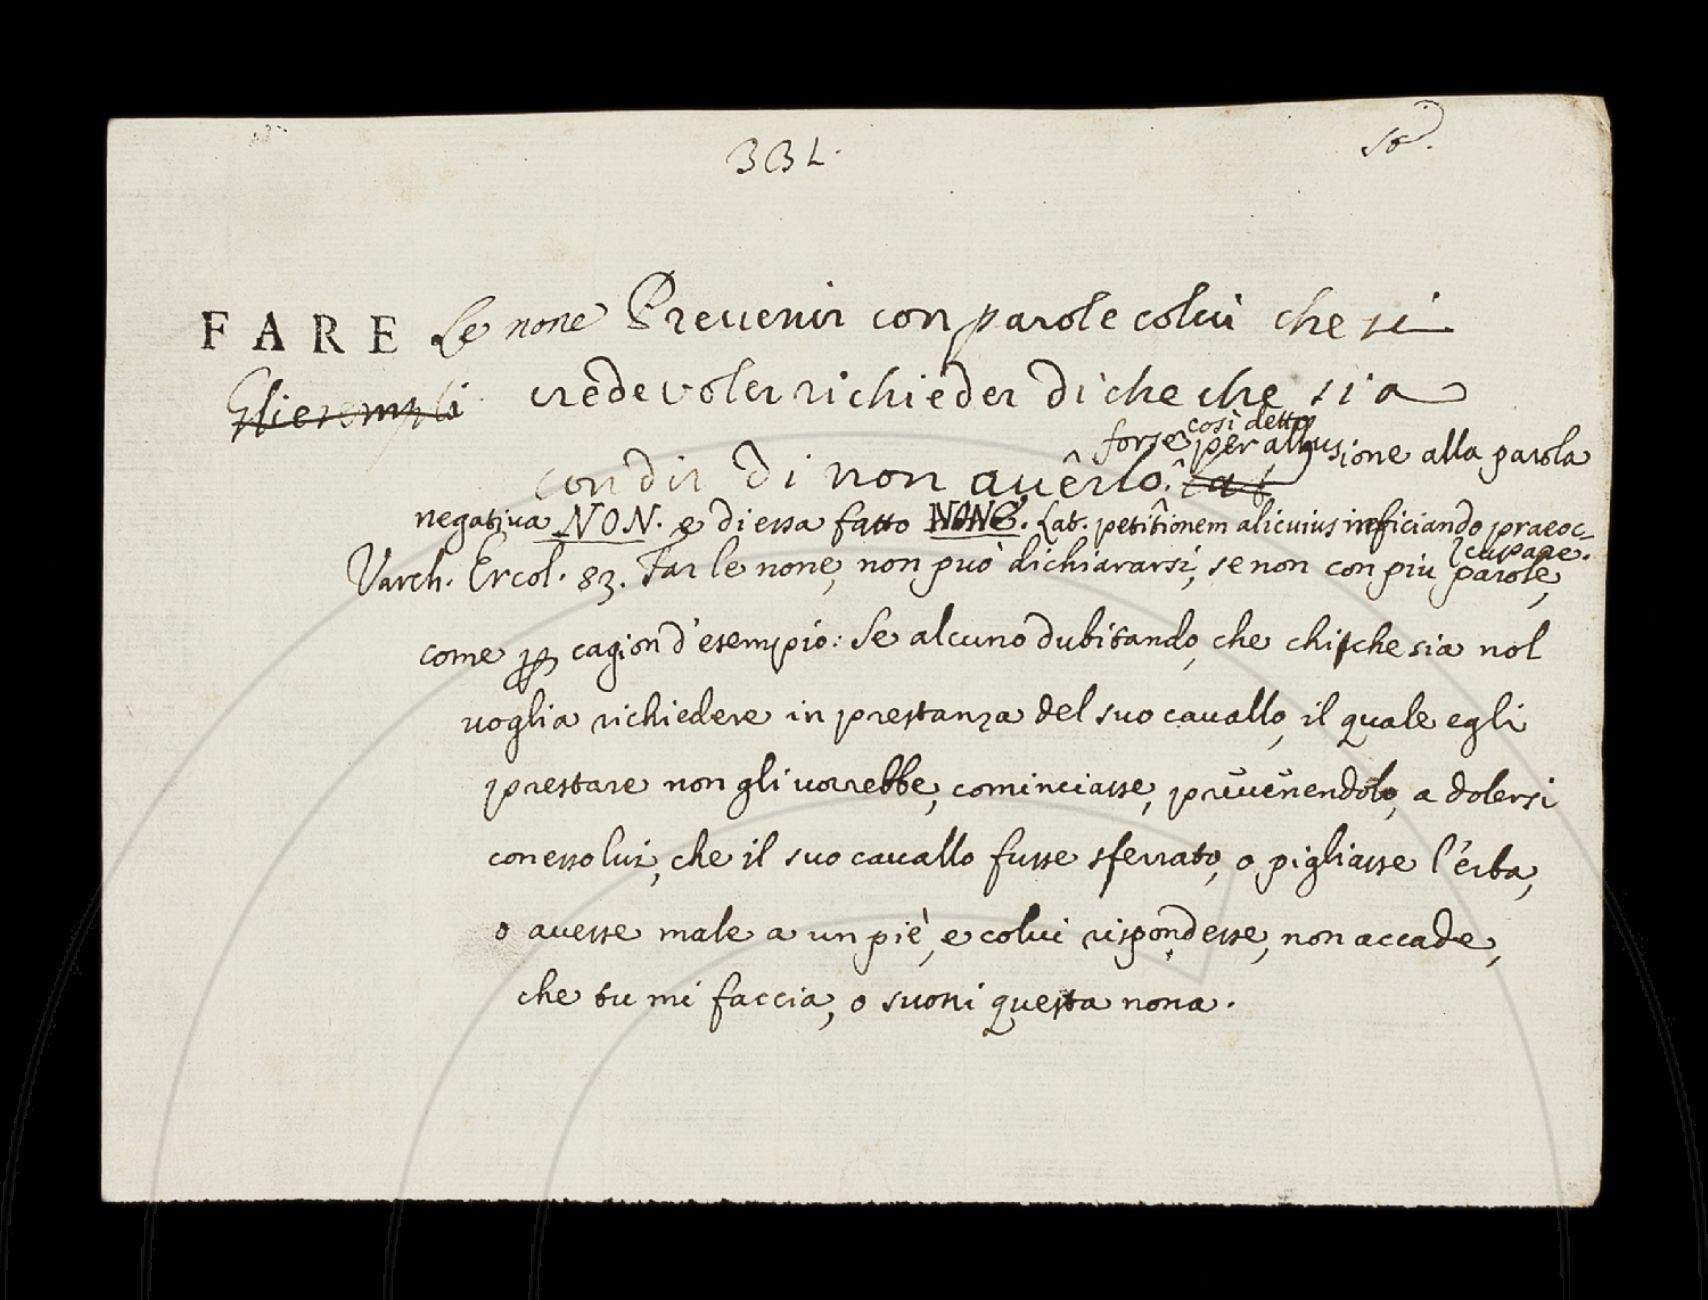 33L.
FARE Le none Prevenir con parole colui che si
Gli esempli crede voler richieder di che che sia
così detto
forse per allusione alla parola
con dir di non avêrlo. Lat
negativa NON. e di essa fatto NONE. Lat. petitionem alicuius inficiando praeoc-
cupare.
Varch. Ercol. 83. Far le none, non può dichiararsi, se non con più parole,
come p cagion d'esempio: Se alcuno dubitando, che chi che sia nol
voglia richiedere in prestanza del suo cavallo, il quale egli
prestare non gli vorrebbe, cominciasse, prevenendolo, a dolersi
con esso lui, che il suo cavallo fusse sferrato, o pigliasse l'erba,
o avesse male a un piè, e colui rispondesse, non accade,
che tu mi faccia, o suoni questa nona.